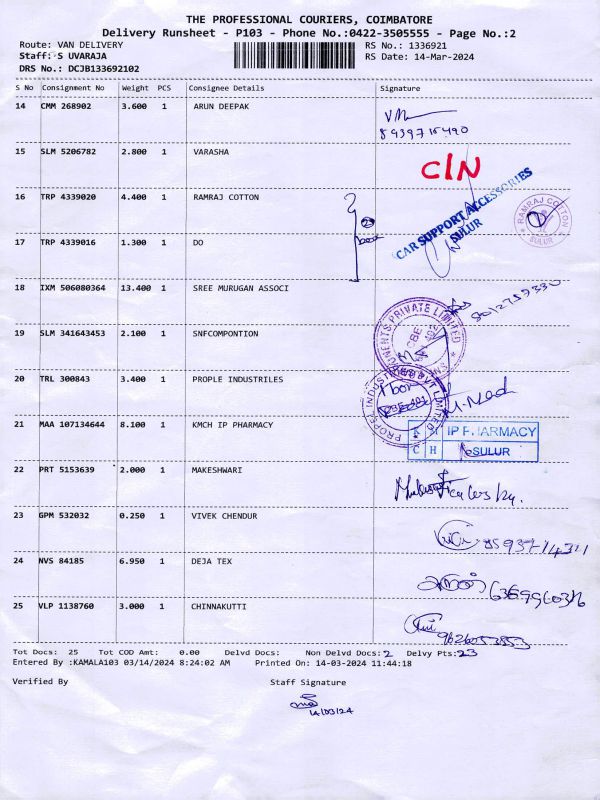 THE PROFESSIONAL COURIERS, COIMBATORE
Delivery Runsheet - P103 - Phone No.:0422-3505555 - Page No.:2
Route: VAN DELIVERY RS No.: 1336921
Staff: S UVARAJA RS Date: 14-Mar-2024
DRS No.: DCJB133692102
S No Consignment No Weight PCS Consignee Details Signature
14 CMM 268902 3.600 1 ARUN DEEPAK
8939715490
15 SLM 5206782 2.800 1 VARASHA C/N
16 TRP 4339020 4.400 1 RAMRAJ COTTON
CAR SUPPORT ACCESSORIES
SULUR
RAMRAJ COTTON
SULUR
17 TRP 4339016 1.300 1 DO
18 IXM 506080364 13.400 1 SREE MURUGAN ASSOCI
19 SLM 341643453 2.100 1 SNFCOMPONTION
20 TRL 300843 3.400 1 PROPLE INDUSTRILES
21 MAA 107134644 8.100 1 KMCH IP PHARMACY
IP PHARMACY
C H SULUR
22 PRT 5153639 2.000 1 MAKESHWARI
23 GPM 532032 0.250 1 VIVEK CHENDUR
24 NVS 84185 6.950 1 DEJA TEX
25 VLP 1138760 3.000 1 CHINNAKUTTI
Tot Docs: 25 Tot COD Amt: 0.00 Delvd Docs: Non Delvd Docs: 2 Delvy Pts: 23
Entered By :KAMALA103 03/14/2024 8:24:02 AM Printed On: 14-03-2024 11:44:18
Verified By Staff Signature
14/03/24